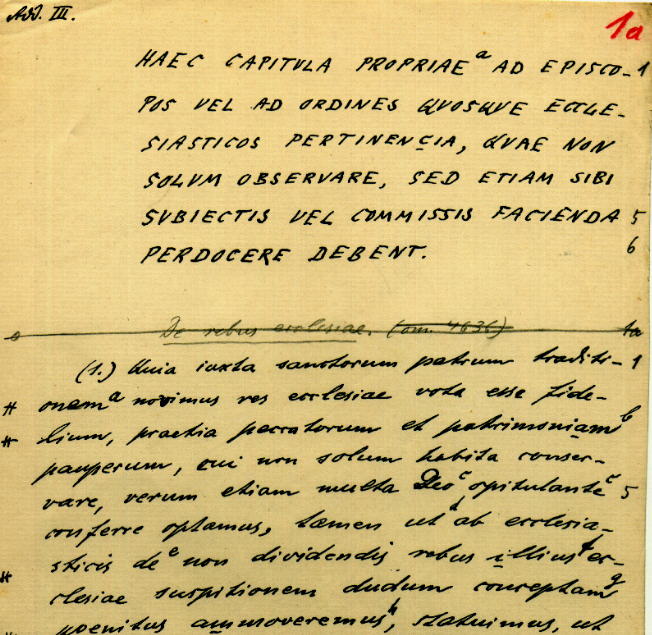 Add. III.
1a
HAEC CAPITVLA PROPRIAE a AD EPISCO- 1
POS VEL AD ORDINES QVOSQVE ECCLE-
SIASTICOS PERTINENCIA, QVAE NON
SOLVM OBSERVARE, SED ETIAM SIBI
SVBIECTIS VEL COMMISSIS FACIENDA 5
PERDOCERE DEBENT. 6
De rebus ecclesiae. (om. 4636) 1a
(1.) Quia iuxta sanctorum patrum traditi- 1
# onem a novimus res ecclesiae vota esse fide-
# lium, praetia peccatorum et patrimoniam b
pauperum, cui non solum habita conser-
vare, verum etiam multa Deo c opitulante c 5
conferre optamus, tamen ut d ab ecclesia-
# sticis de e non dividendis rebus illius f ec-
clesiae suspitionem dudum conceptam g
# poenitus ammoveremus h, statuimus, ut